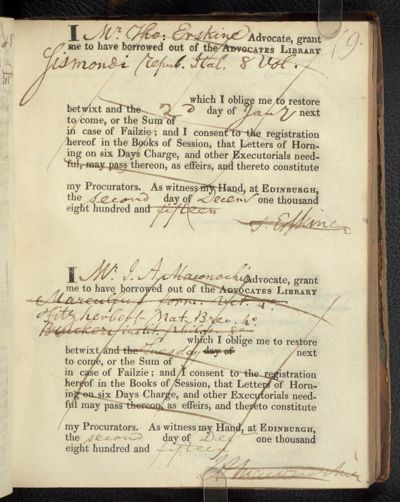 I Mr. Tho: Erskine Advocate, grant
me to have borrowed out of the ADVOCATES LIBRARY
79.
Sismondi repub. Ital. 8 Vol.
which I oblige me to restore
betwixt and the 2d day of Jany next
to come, or the Sum of
in case of Failzie; and I consent to the registration
hereof in the Books of Session, that Letters of Horn-
ing on six Days Charge, and other Executorials need-
ful, may pass thereon, as effeirs, and thereto constitute
my Procurators. As witness my Hand, at EDINBURGH,
the second day of Decem one thousand
eight hundred and fifteen
T. Erskine
I Mr. J. A. Maconochie Advocate, grant
me to have borrowed out of the ADVOCATES LIBRARY
Marculfus form. Vet.
Fitzherbert Nat. Brev. 4o
which I oblige me to restore
betwixt and the Tuesday day of next
to come, or the Sum of
in case of Failzie; and I consent to the registration
hereof in the Books of Session, that Letters of Horn-
ing on six Days Charge, and other Executorials need-
ful may pass thereon, as effeirs, and thereto constitute
my Procurators. As witness my Hand, at EDINBURGH,
the second day of Decr one thousand
eight hundred and fifteen